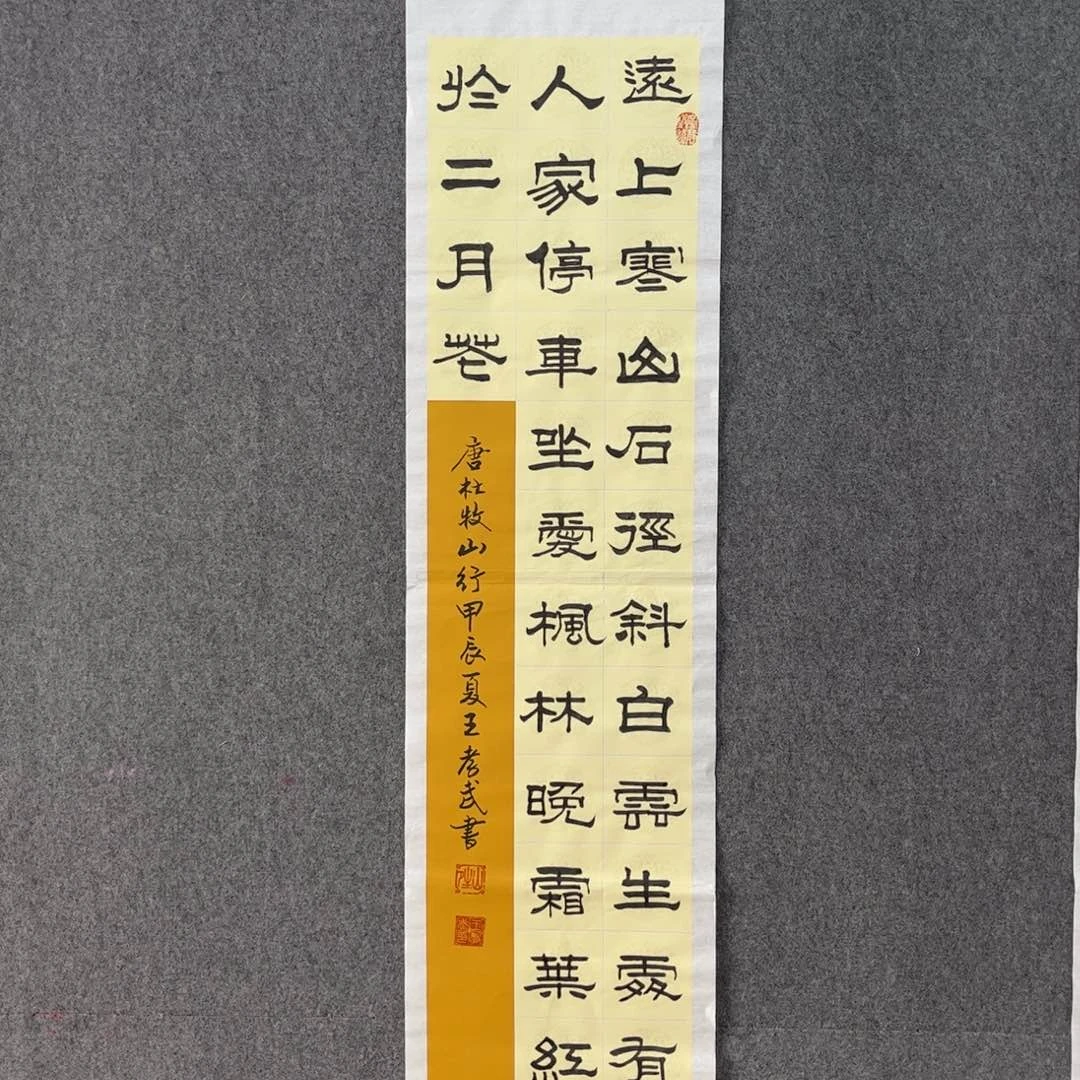 遠上寒山石徑斜白雲生處有
人家停車坐愛楓林晚霜葉紅
於二月花
唐杜牧山行甲辰夏王孝武書